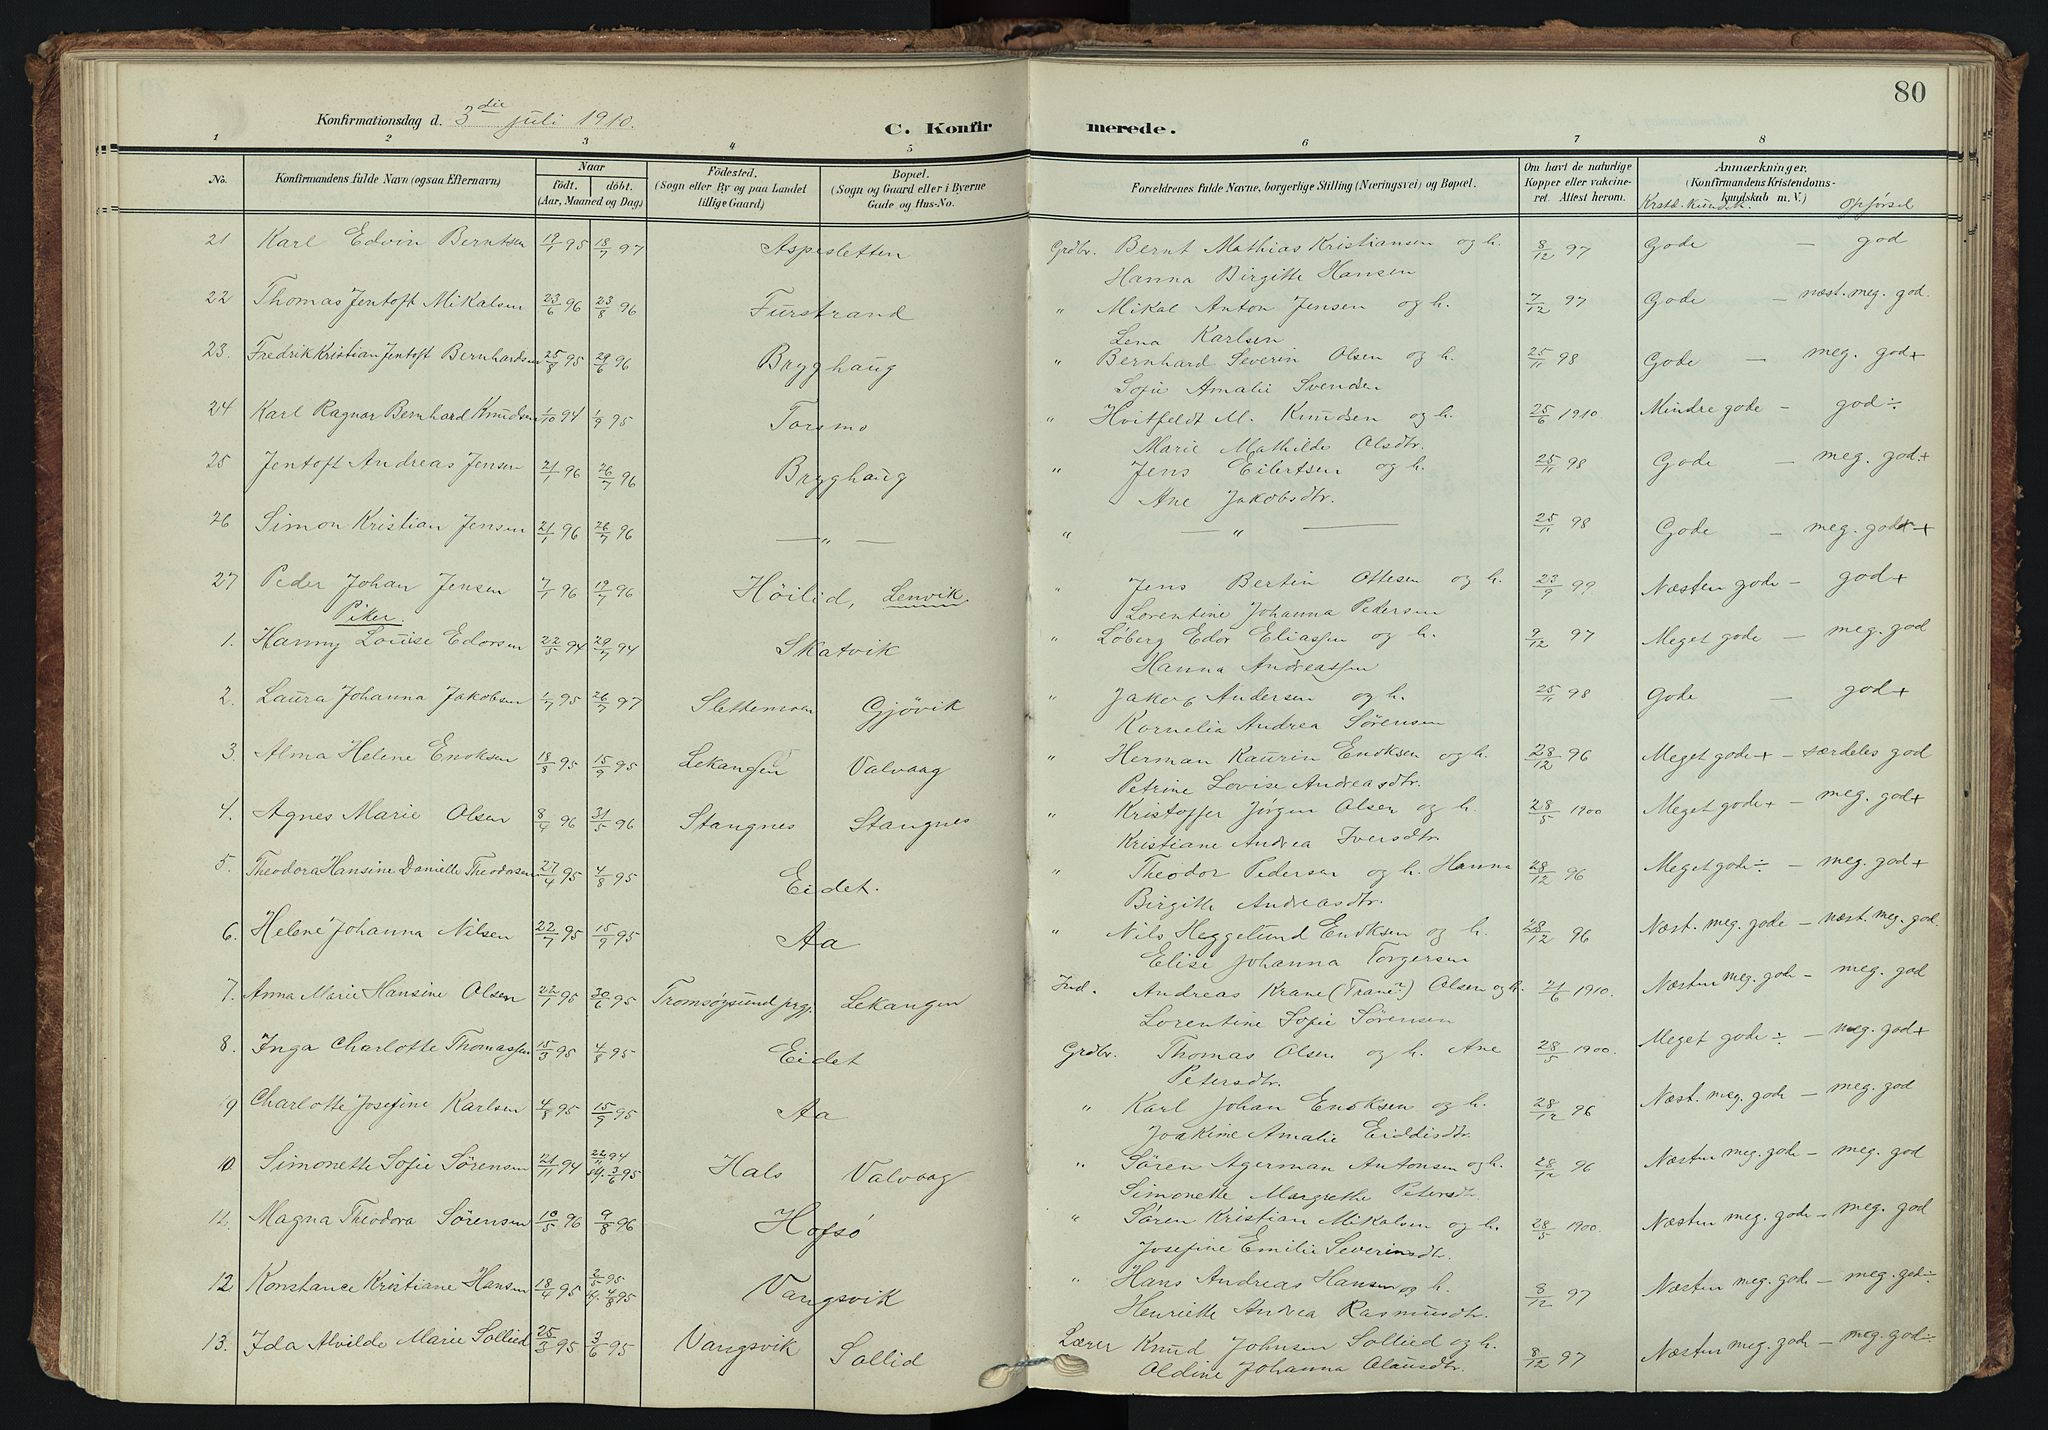 80
Konfirmationsdag d. 3die juli 1910.
C. Konfirmerede.
1 2 3 4 5 6 7 8
No. Konfirmandens fulde Navn (ogsaa Efternavn) Naar født. døbt. (Aar, Maaned og Dag) Fødested. (Sogn eller By og paa Landet tillige Gaard) Bopæl. (Sogn og Gaard eller i Byerne Gade og Hus-No. Forældrenes fulde Navne, borgerlige Stilling (Næringsvei) og Bopæl. Om havt de naturlige Kopper eller vakcineret. Attest herom. Anmærkninger. (Konfirmandens Kristendomskundskab m. V.) Krstd. kundsk. Opførsel
21 Karl Edvin Berntsen 19/1 95 18/7 97 Aspesletten Grdbr. Bernt Mathias Kristiansen og h. 8/12 97 Gode — god
Hanna Birgitte Hansen
22 Thomas Jentoft Mikalsen 23/6 96 23/8 96 Furstrand " Mikal Anton Jensen og h. 7/12 97 Gode — næst. meg. god.
Lena Karlsen
23. Fredrik Kristian Jentoft Bernhardsen 25/8 95 29/6 96 Brygghaug " Bernhard Severin Olsen og h. 25/11 98 Gode — meg. god+
Sofie Amalie Svendsen
24 Karl Ragnar Bernhard Knudsen 1/10 94 1/9 95 Torsmo " Hvitfeldt M. Knudsen og h. 25/6 1910. Mindre gode — god÷
Marie Mathilde Olsdtr.
25 Jentoft Andreas Jensen 21/1 96 26/7 96 Brygghaug " Jens Eilertsen og h. 25/11 98 Gode — meg. god.+
Ane Jakobsdtr.
26 Simon Kristian Jensen 21/1 96 26/7 96 — " — " — " — 25/11 98 Gode — meg. god+
27 Peder Johan Jensen 7/1 96 19/7 96 Höilid, Lenvik. " Jens Bertin Ottesen og h. 23/9 99 Næsten gode — god+
Lorentine Johanna Pedersen
Piker.
1. Hanny Louise Edorsen 22/5 94 29/7 94 Skatvik " Løberg Edor Eliassen og h. 9/12 97 Meget gode — meg. god
Hanna Andreassen
2. Laura Johanna Jakobsen 1/7 95 26/7 97 Slettemoen Gjövik " Jakob Andersen og h. 25/11 98 Gode — god+
Kornelia Andrea Sørensen
3. Alma Helene Enoksen 18/8 95 15/9 95 Lekangen Valvaag " Herman Kaurin Enoksen og h. 28/12 96 Meget gode+ — særdeles god
Petrine Lovise Andreasdtr.
4. Agnes Marie Olsen 8/4 96 31/5 96 Stangnes Stangnes " Kristoffer Jörgen Olsen og h. 28/5 1900 Meget gode+ — meg. god+
Kristiane Andrea Iversdtr.
5. Theodora Hansine Danielle Theodorsen 27/4 95 4/8 95 Eidet. " Theodor Pedersen og h. Hanna 28/12 96 Meget gode÷ — meg. god+
Birgitte Andreasdtr.
6. Helene Johanna Nilsen 22/7 95 15/9 95 Aa " Nils Heggelund Enoksen og h. 28/12 96 Næst. meg. gode — næst. meg. god.
Elise Johanna Torgersen
7. Anna Marie Hansine Olsen 22/1 95 30/6 95 Tromsøysund prgj. Lekangen Ind. Andreas Krane (Trane?) Olsen og h. 21/6 1910. Næsten meg. gode — meg. god
Lorentine Sofie Sørensen
8. Inga Charlotte Thomassen 15/3 95 4/8 95 Eidet Grdbr. Thomas Olsen og h. Ane 28/5 1900. Meget gode÷ — meg. god+
Petersdtr.
9 Charlotte Josefine Karlsen 4/8 95 15/9 95 Aa " Karl Johan Enoksen og h. 28/12 96 Næst. meg. gode — meg. god
Joakime Amalie Eiddisdtr.
10. Simonette Sofie Sørensen 21/11 94 22/11 94 st. 3/6 95 Hals Valvaag " Søren Agerman Antonsen og h. 28/12 96 Næsten meg. gode — meg. god
Simonette Margrethe Petersdtr.
11. Magna Theodora Sørensen 10/5 96 9/8 96 Hofsö " Søren Kristian Mikalsen og h. 28/5 1900. Næsten meg. gode — meg. god
Josefine Emilie Severinsdtr.
12 Konstance Kristiane Hansen 18/4 95 2/5 95 st. 4/8 95 Vangsvik " Hans Andreas Hansen og h. 8/12 97 Næsten meg. gode — meg. god÷
Henriette Andrea Rasmusdtr.
13. Ida Alvilde Marie Sollied 25/3 95 3/6 95 Vangsvik Sollid Lærer Knud Johnsen Sollied og h. 8/12 97 Næsten meg. gode — meg. god÷
Oldine Johanna Olausdtr.